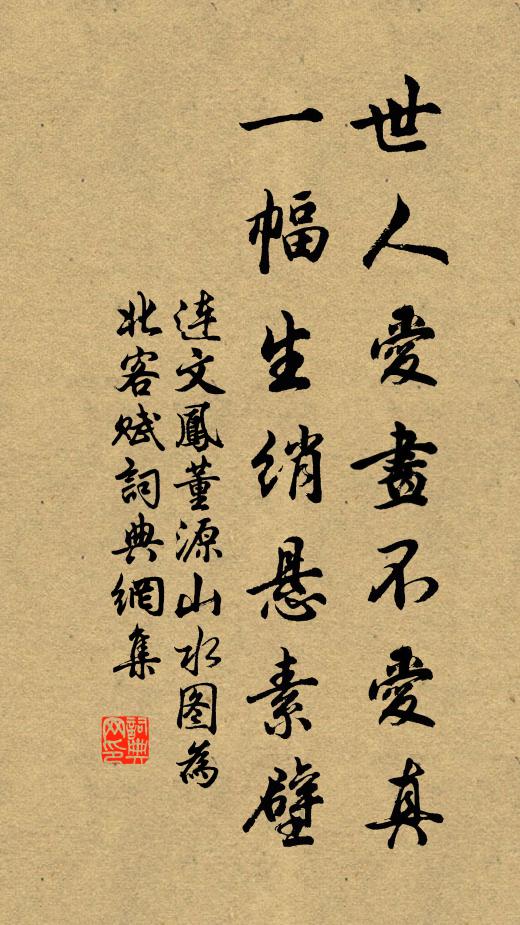 世人愛畫不愛真
一幅生绡悬素壁
连文鳳董源山水图為
北客赋詞典網集
詞典
网印